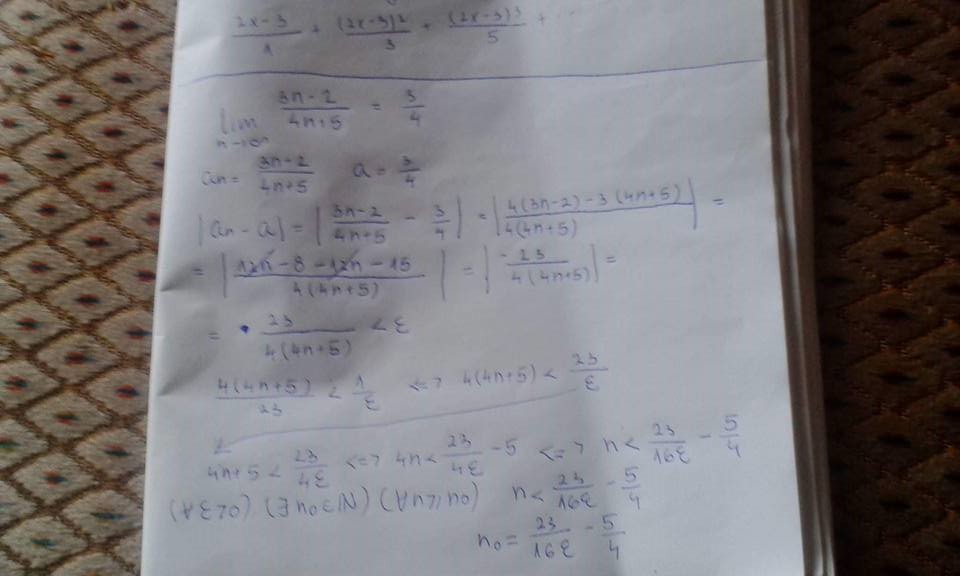 (2x-3)/1 + (2x-3)²/3 + (2x-3)³/5 + ...
lim n→∞ (3n-2)/(4n+5) = 3/4
an = (3n-2)/(4n+5) a = 3/4
|an - a| = |(3n-2)/(4n+5) - 3/4| = |(4(3n-2)-3(4n+5))/(4(4n+5))| =
= |(12n-8-12n-15)/(4(4n+5))| = |-23/(4(4n+5))| =
= 23/(4(4n+5)) < ε
(4(4n+5))/23 < 1/ε <=> 4(4n+5) < 23/ε
4n+5 < 23/(4ε) <=> 4n < 23/(4ε) - 5 <=> n < 23/(16ε) - 5/4
(∀ε>0) (∃n₀∋ℕ) (∀n≥n₀) n < 23/(16ε) - 5/4
n₀ = 23/(16ε) - 5/4